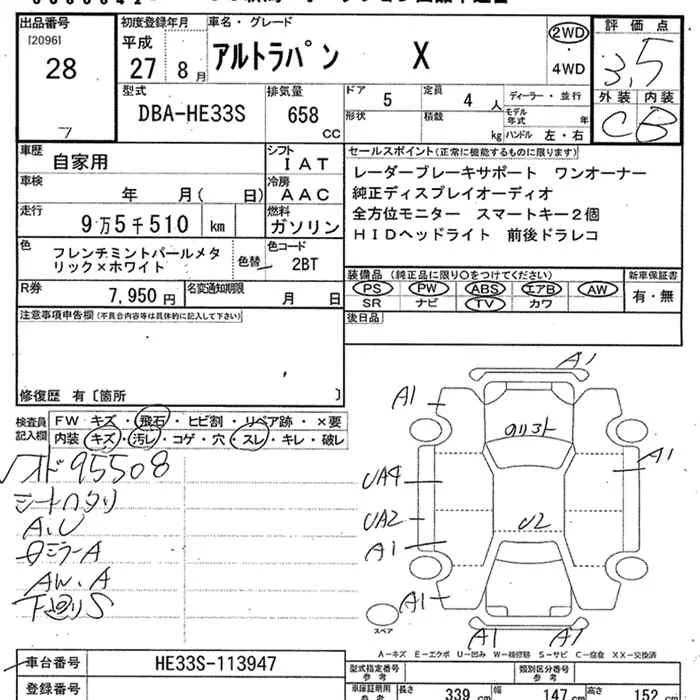 出品番号
[2096]
28
初度登録年月
平成
27 8 月
車名・グレード
アルトラパン X
2WD
・
4WD
評価点
3.5
外装 内装
C B
型式
DBA-HE33S
排気量
658
CC
ドア
5
定員
4 人
ディーラー・並行
形状
積載
kg
モデル年式 年
ハンドル 左・右
車歴
自家用
シフト
IAT
車検
年 月( 日)
冷房
AAC
走行
9万5千510 km
燃料
ガソリン
色
フレンチミントパールメタ
リック×ホワイト
色替
色コード
2BT
R券
7,950 円
名変通知期限
月 日
セールスポイント(正常に機能するものに限ります)
レーダーブレーキサポート ワンオーナー
純正ディスプレイオーディオ
全方位モニター スマートキー2個
HIDヘッドライト 前後ドラレコ
装備品 (純正品に限り○をつけてください)
新車保証書
PS PW ABS エアB AW
SR ナビ TV カワ
有・無
後日品
注意事項申告欄(不具合内容等は具体的に記入して下さい)
修復歴 有〔箇所 〕
検査員
記入欄
FW キズ・飛石・ヒビ割・リペア跡・×要
内装 キズ・汚レ・コゲ・穴・スレ・キレ・破レ
95508
A.U
AW.A
下廻りS
A1
A1
A1
UA4
UA2
U2
A1
A1
A1 A1
スペア
A-キズ E-エクボ U-凹み W-補修跡 S-サビ C-腐食 XX-交換済
車台番号
HE33S-113947
登録番号
型式指定番号
参考
類別区分番号
参考
車庫証明用
参考
長さ
339 cm
幅
147 cm
高さ
152 cm